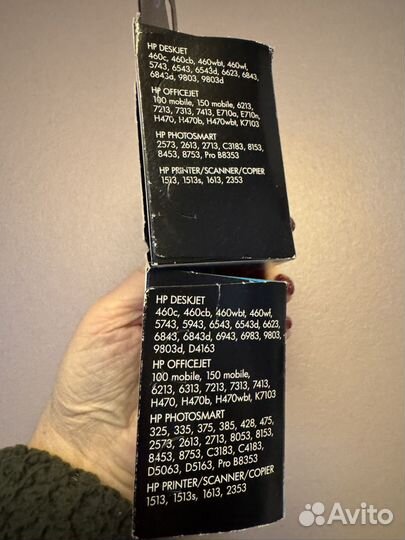 HP DESKJET
460c, 460cb, 460wbt, 460wf,
5743, 6543, 6543d, 6623, 6843,
6843d, 9803, 9803d
HP OFFICEJET
100 mobile, 150 mobile, 6213,
7213, 7313, 7413, E710a, E710n,
H470, H470b, H470wbt, K7103
HP PHOTOSMART
2573, 2613, 2713, C3183, 8153,
8453, 8753, Pro B8353
HP PRINTER/SCANNER/COPIER
1513, 1513s, 1613, 2353
HP DESKJET
460c, 460cb, 460wbt, 460wf,
5743, 5943, 6543, 6543d, 6623,
6843, 6843d, 6943, 6983, 9803,
9803d, D4163
HP OFFICEJET
100 mobile, 150 mobile,
6213, 6313, 7213, 7313, 7413,
H470, H470b, H470wbt, K7103
HP PHOTOSMART
325, 335, 375, 385, 428, 475,
2573, 2613, 2713, 8053, 8153,
8453, 8753, C3183, C4183,
D5063, D5163, Pro B8353
HP PRINTER/SCANNER/COPIER
1513, 1513s, 1613, 2353
Avito